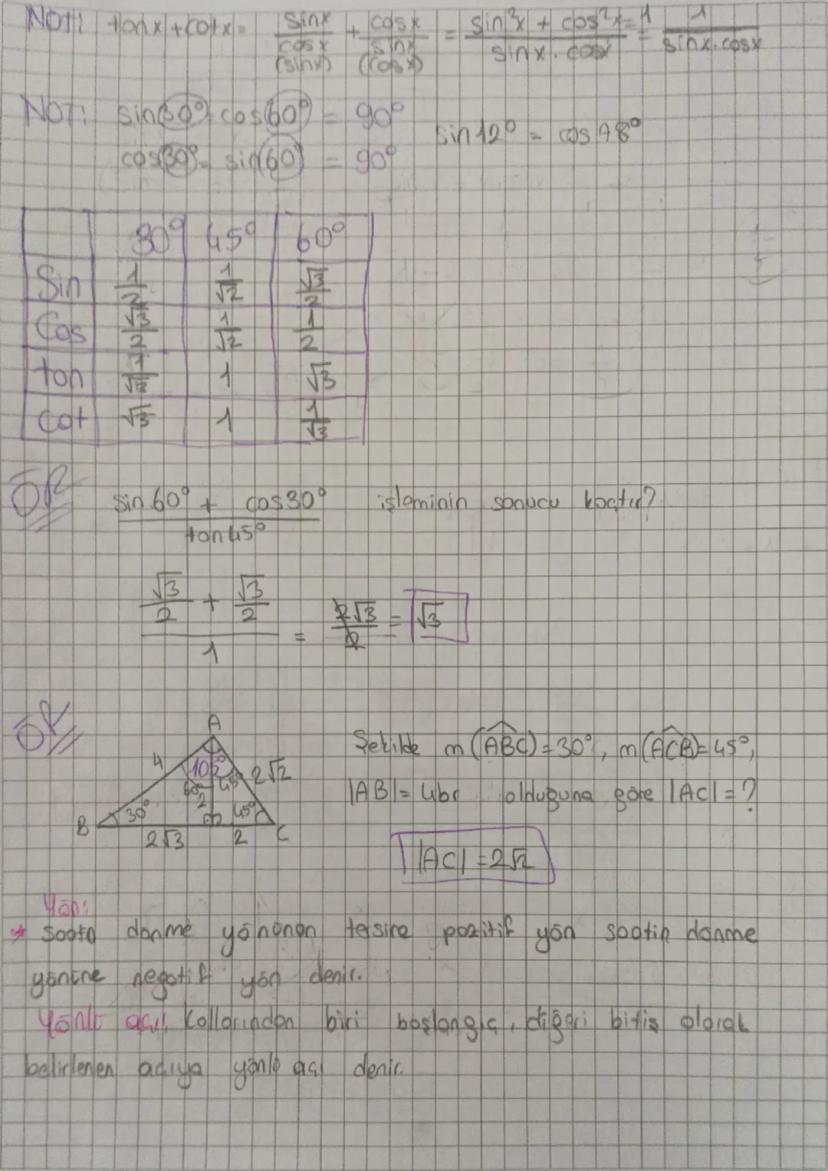 NOT: tanx + cotx = sinx/cosx (sinx) + cosx/sinx (cosx) = sin²x + cos²x = 1/sinx . cosx = 1/sinx.cosx
NOT: sin(30°) cos(60°) = 90°
sin12° = cos78°
cos30° sin(60) = 90°
30° 45° 60°
Sin 1/2 1/√2 √3/2
Cos √3/2 1/√2 1/2
tan 1/√3 1 √3
cot √3 1 1/√3
ÖR
sin60° + cos30° / tan45° işleminin sonucu kaçtır?
√3/2 + √3/2 / 1 = 2√3/2 = √3
ÖR
A
4 105° 2√2
60° 45°
2
B 30° 45° C
2√3 2
Şekilde m(ABC)=30°, m(ACB)=45°,
|AB|=4br olduğuna göre |AC|=?
|AC|=2√2
Yön:
* Saata dönme yönünün tersine pozitif yön saatin dönme
yönüne negatif yön denir.
Yönlü açı, kollarından biri başlangıç, diğeri bitiş olarak
belirlenen açıya yönlü açı denir.